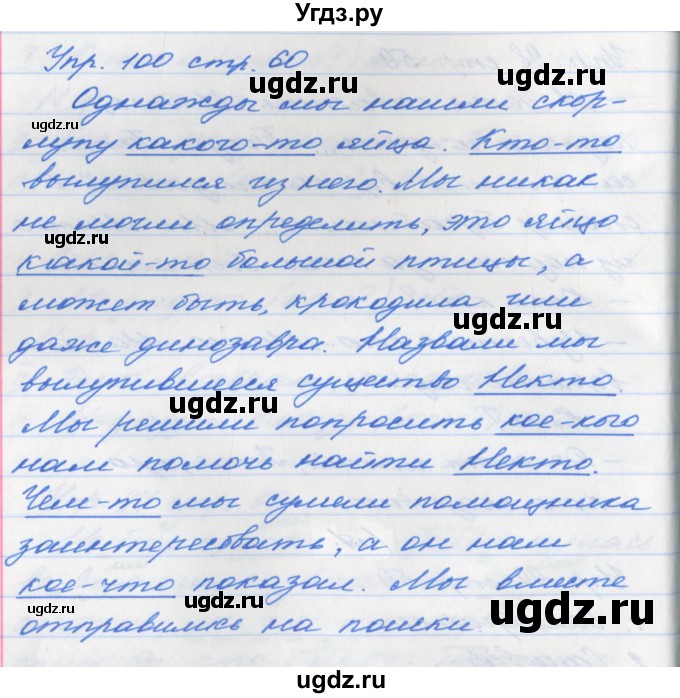 Угдз.ру
Упр. 100 стр. 60
Однажды мы нашли скор-
лупу какого-то яйца. Кто-то
вылупился из него. Мы никак
не могли определить, это яйцо
какой-то большой птицы, а
может быть, крокодила или
даже динозавра. Назвали мы
вылупившееся существо Некто.
Мы решили попросить кое-кого
нам помочь найти Некто.
Чем-то мы сумели помощника
заинтересовать, а он нам
кое-что показал. Мы вместе
отправились на поиски.
ugdz.ru
ugdz.ru
ugdz.ru
ugdz.ru
ugdz.ru
ugdz.ru
ugdz.ru
ugdz.ru
ugdz.ru
ugdz.ru
ugdz.ru